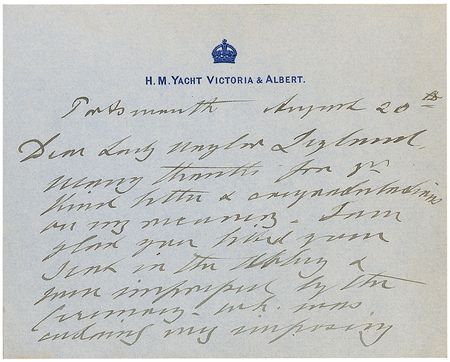 H. M. YACHT VICTORIA & ALBERT.
Portsmouth August 20th
Dear Lady Naylor Leyland
Many thanks for yr
kind letter & congratulations
on my recovery. I am
glad you liked your
seat in the Abbey &
were impressed by the
Ceremony wh. was
imposing